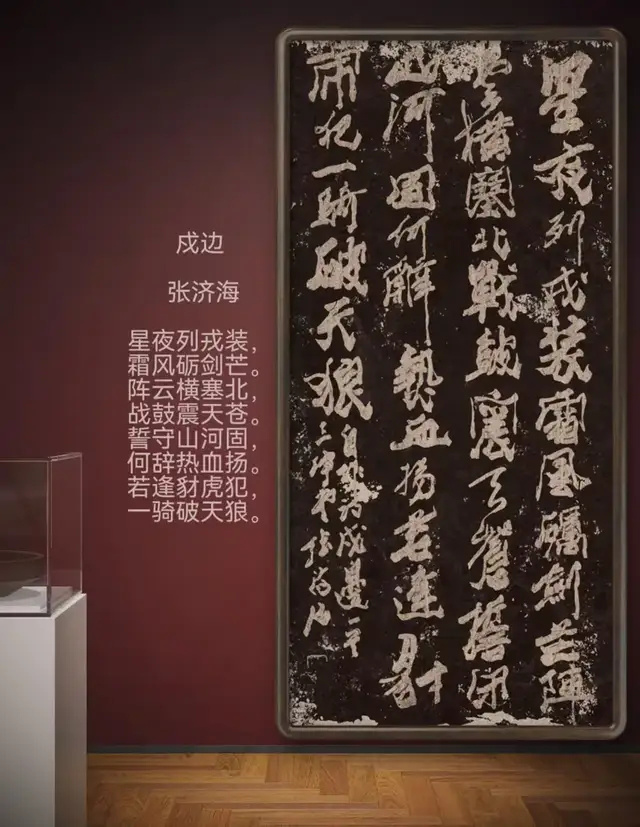 戍边
张济海
星夜列戎装，
霜风砺剑芒。
阵云横塞北，
战鼓震天苍。
誓守山河固，
何辞热血扬。
若逢豺虎犯，
一骑破天狼。
星夜列戎装霜风砺剑芒阵
云横塞北战鼓震天苍誓守
山河固何辞热血扬若逢豺
虎犯一骑破天狼